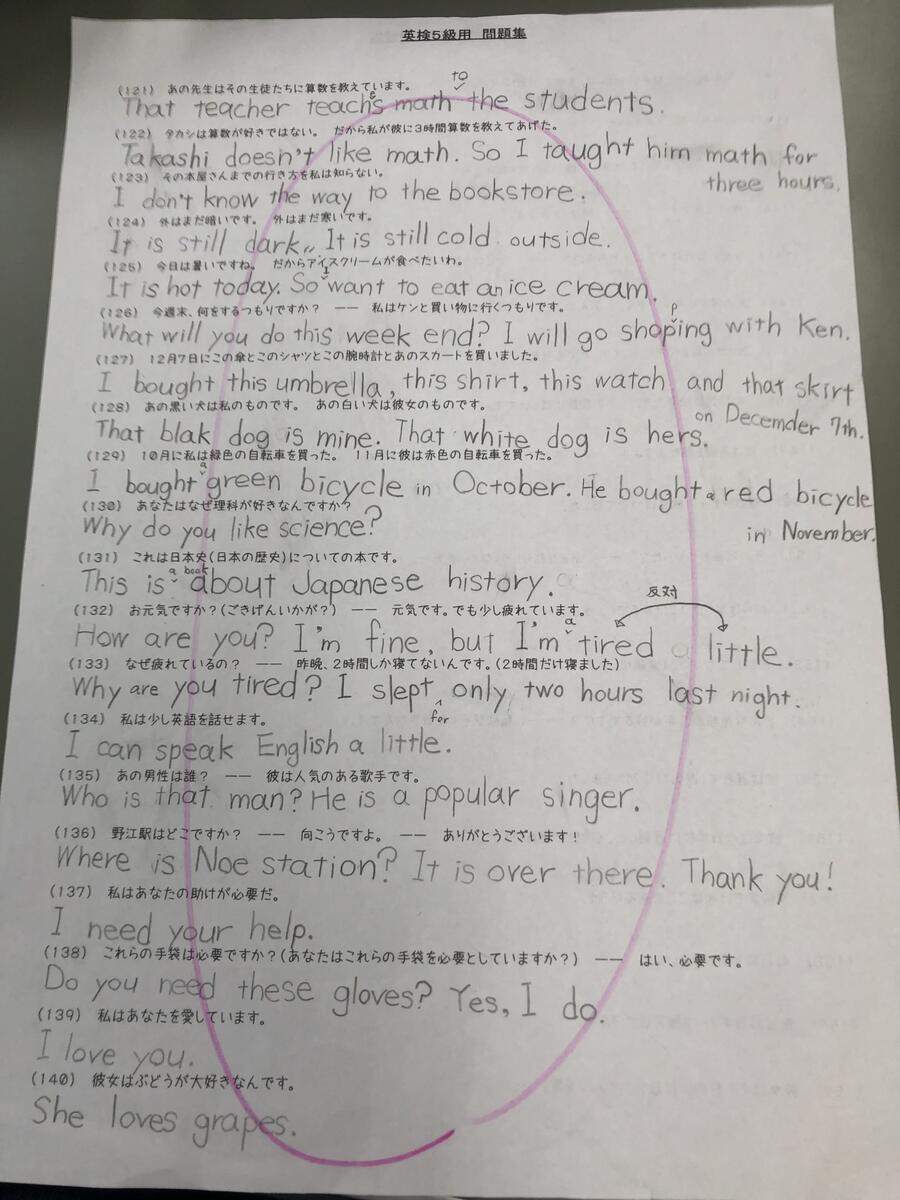 英検5級用 問題集
(121) あの先生はその生徒たちに算数を教えています。
to
That teacher teaches math the students.
(122) タカシは算数が好きではない。 だから私が彼に3時間算数を教えてあげた。
Takashi doesn't like math. So I taught him math for
three hours.
(123) その本屋さんまでの行き方を私は知らない。
I don't know the way to the bookstore.
(124) 外はまだ暗いです。 外はまだ寒いです。
It is still dark,, It is still cold outside.
(125) 今日は暑いですね。 だからアイスクリームが食べたいわ。
I
It is hot today. So want to eat an ice cream.
(126) 今週末、何をするつもりですか? —— 私はケンと買い物に行くつもりです。
p
What will you do this week end? I will go shoping with Ken.
(127) 12月7日にこの傘とこのシャツとこの腕時計とあのスカートを買いました。
I bought this umbrella, this shirt, this watch and that skirt
on Decemder 7th.
(128) あの黒い犬は私のものです。 あの白い犬は彼女のものです。
That blak dog is mine. That white dog is hers.
(129) 10月に私は緑色の自転車を買った。 11月に彼は赤色の自転車を買った。
a
I bought green bicycle in October. He bought a red bicycle
in November.
(130) あなたはなぜ理科が好きなんですか?
Why do you like science?
(131) これは日本史(日本の歴史)についての本です。
a book
This is about Japanese history.
(132) お元気ですか?(ごきげんいかが?) —— 元気です。でも少し疲れています。
反対
a
How are you? I'm fine, but I'm tired a little.
(133) なぜ疲れているの? —— 昨晩、2時間しか寝てないんです。(2時間だけ寝ました)
Why are you tired? I slept only two hours last night.
for
(134) 私は少し英語を話せます。
I can speak English a little.
(135) あの男性は誰? —— 彼は人気のある歌手です。
Who is that man? He is a popular singer.
(136) 野江駅はどこですか? —— 向こうですよ。 —— ありがとうございます!
Where is Noe station? It is over there. Thank you!
(137) 私はあなたの助けが必要だ。
I need your help.
(138) これらの手袋は必要ですか?(あなたはこれらの手袋を必要としていますか?) —— はい、必要です。
Do you need these gloves? Yes, I do.
(139) 私はあなたを愛しています。
I love you.
(140) 彼女はぶどうが大好きなんです。
She loves grapes.